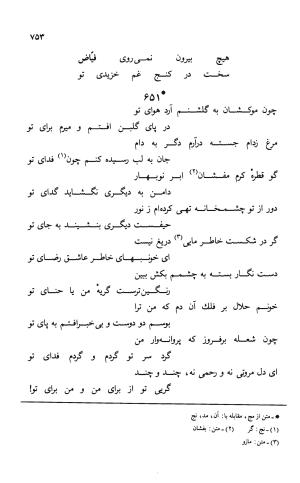 ۷۵۳
هیچ بیرون نمی‌روی فیّاض
سخت در کنج غم خزیدی تو
*۶۵۱
چون موکشان به گلشنم آرد هوای تو
در پای گلبن افتم و میرم برای تو
مرغ زدام جسته درآرم دگر به دام
جان به لب رسیده کنم چون(۱) فدای تو
گو قطره کرم مفشان(۲) ابر نوبهار
دامن به دیگری نگشاید گدای تو
دور از تو چشمخانه تهی کرده‌ام ز نور
حیفست دیگری بنشیند به جای تو
گر در شکست خاطر مایی(۳) دریغ نیست
ای خونبهای خاطر عاشق رضای تو
دست نگار بسته به چشمم بکش ببین
رنگین‌ترست گریهٔ من یا حنای تو
خونم حلال بر فلک آن دم که من ترا
بوسم دو دوست و بی‌خبر افتم به پای تو
چون شعله برفروز که پروانه‌وار من
گرد سر تو گردم و گردم فدای تو
ای دل مروتی نه و رحمی نه، چند و چند
گریی تو از برای من و من برای تو!
* - متن از مج، مقابله با: آن، مد، نج
(۱) - نج: گر (۲) - متن: بفشان
(۳) - متن: مازو